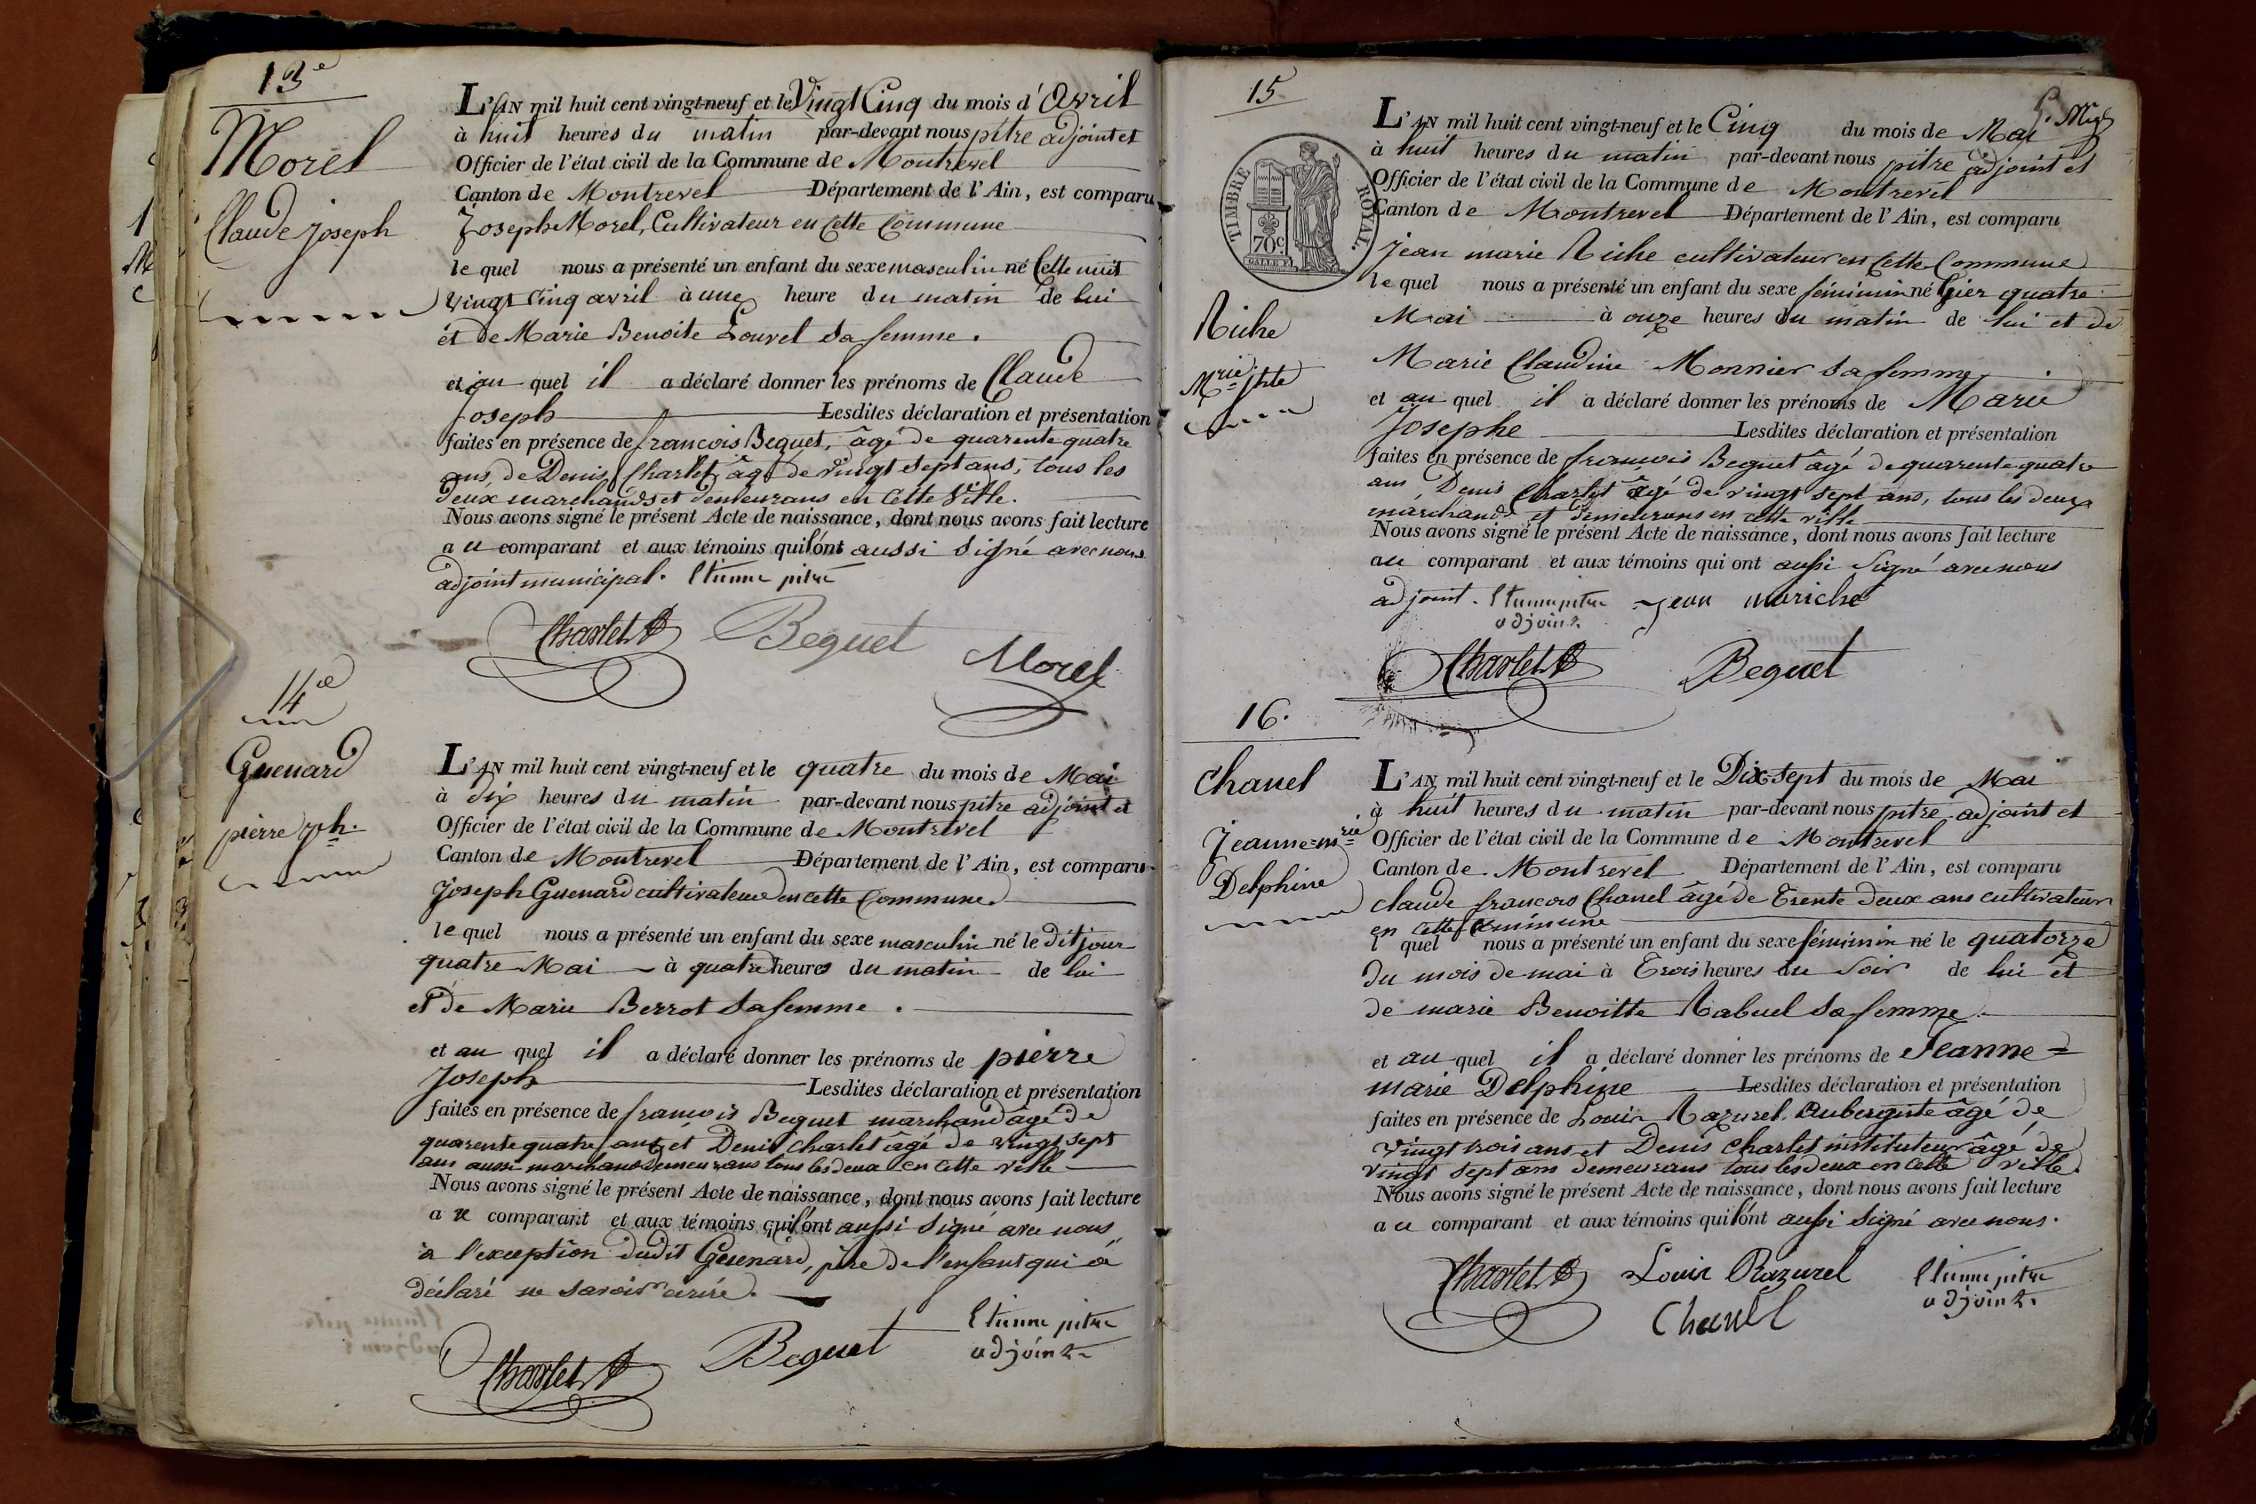 13e
Morel
Claude joseph
L'AN mil huit cent vingt-neuf et le Vingt Cinq du mois d'Avril
à huit heures du matin par-devant nous pitre adjoint et
Officier de l'état civil de la Commune de Montrevel
Canton de Montrevel Département de l'Ain, est comparu
Joseph Morel, Cultivateur en Cette Commune
le quel nous a présenté un enfant du sexe masculin né Cette nuit
vingt Cinq avril à une heure du matin de lui
et de Marie Benoite Louvel Sa femme.
et au quel il a déclaré donner les prénoms de Claude
joseph Lesdites déclaration et présentation
faites en présence de francois Beguet, âgé de quarente quatre
ans, de Denis Charlet âgé de vingt sept ans, tous les
deux marchands et demeurans en Cette Ville.
Nous avons signé le présent Acte de naissance, dont nous avons fait lecture
au comparant et aux témoins qui l'ont aussi Signé avec nous
adjoint municipal. Etienne pitre
Charlet D Beguet
Morel
14e
Guenard
pierre jph.
L'AN mil huit cent vingt-neuf et le quatre du mois de Mai
à dix heures du matin par-devant nous pitre adjoint et
Officier de l'état civil de la Commune de Montrevel
Canton de Montrevel Département de l'Ain, est comparu
Joseph Guenard cultivateur en cette Commune
le quel nous a présenté un enfant du sexe masculin né le dit jour
quatre Mai à quatre heures du matin de lui
et de Marie Berrot Sa femme.
et au quel il a déclaré donner les prénoms de pierre
Joseph Lesdites déclaration et présentation
faites en présence de francois Beguet marchand âgé de
quarente quatre ans et Denis Charlet âgé de vingt sept
ans aussi marchand demeurans tous les deux en cette ville
Nous avons signé le présent Acte de naissance, dont nous avons fait lecture
au comparant et aux témoins qui l'ont aussi Signé avec nous
à l'exception dudit Guenard, père de l'enfant qui a
déclaré ne savoir écrire.
Etienne pitre
adjoint
Charlet D Beguet
15
Riche
Mrie Jphte
L'AN mil huit cent vingt-neuf et le Cinq du mois de Mai
à huit heures du matin par-devant nous pitre adjoint et
Officier de l'état civil de la Commune de Montrevel
Canton de Montrevel Département de l'Ain, est comparu
TIMBRE ROYAL.
70c
jean marie Riche cultivateur en Cette Commune
le quel nous a présenté un enfant du sexe féminin né hier quatre
Mai à onze heures du matin de lui et de
Marie Claudine Monnier Sa femme
et au quel il a déclaré donner les prénoms de Marie
Josephe Lesdites déclaration et présentation
faites en présence de francois Beguet âgé de quarente quatre
ans Denis Charlet âgé de vingt sept ans, tous les deux
marchands et demeurans en cette ville
Nous avons signé le présent Acte de naissance, dont nous avons fait lecture
au comparant et aux témoins qui ont aussi Signé avec nous
adjoint. Etienne pitre jean mariche
adjoint.
Charlet D Beguet
16.
Chanel
Jeanne=mrie=
Delphine
L'AN mil huit cent vingt-neuf et le Dix Sept du mois de Mai
à huit heures du matin par-devant nous pitre adjoint et
Officier de l'état civil de la Commune de Montrevel
Canton de Montrevel Département de l'Ain, est comparu
claude francois Chanel âgé de Trente deux ans cultivateur
en cette Commune
l quel nous a présenté un enfant du sexe féminin né le quatorze
du mois de mai à Trois heures du Soir de lui et
de marie Benoitte Rabuel Sa femme.
et au quel il a déclaré donner les prénoms de Jeanne=
marie Delphine Lesdites déclaration et présentation
faites en présence de Louis Razurel Aubergiste âgé de
vingt trois ans et Denis Charlet instituteur âgé de
vingt Sept ans demeurans tous les deux en cette ville.
Nous avons signé le présent Acte de naissance, dont nous avons fait lecture
au comparant et aux témoins qui l'ont aussi Signé avec nous.
Charlet D Louis Razurel Etienne pitre
adjoint.
Chanel